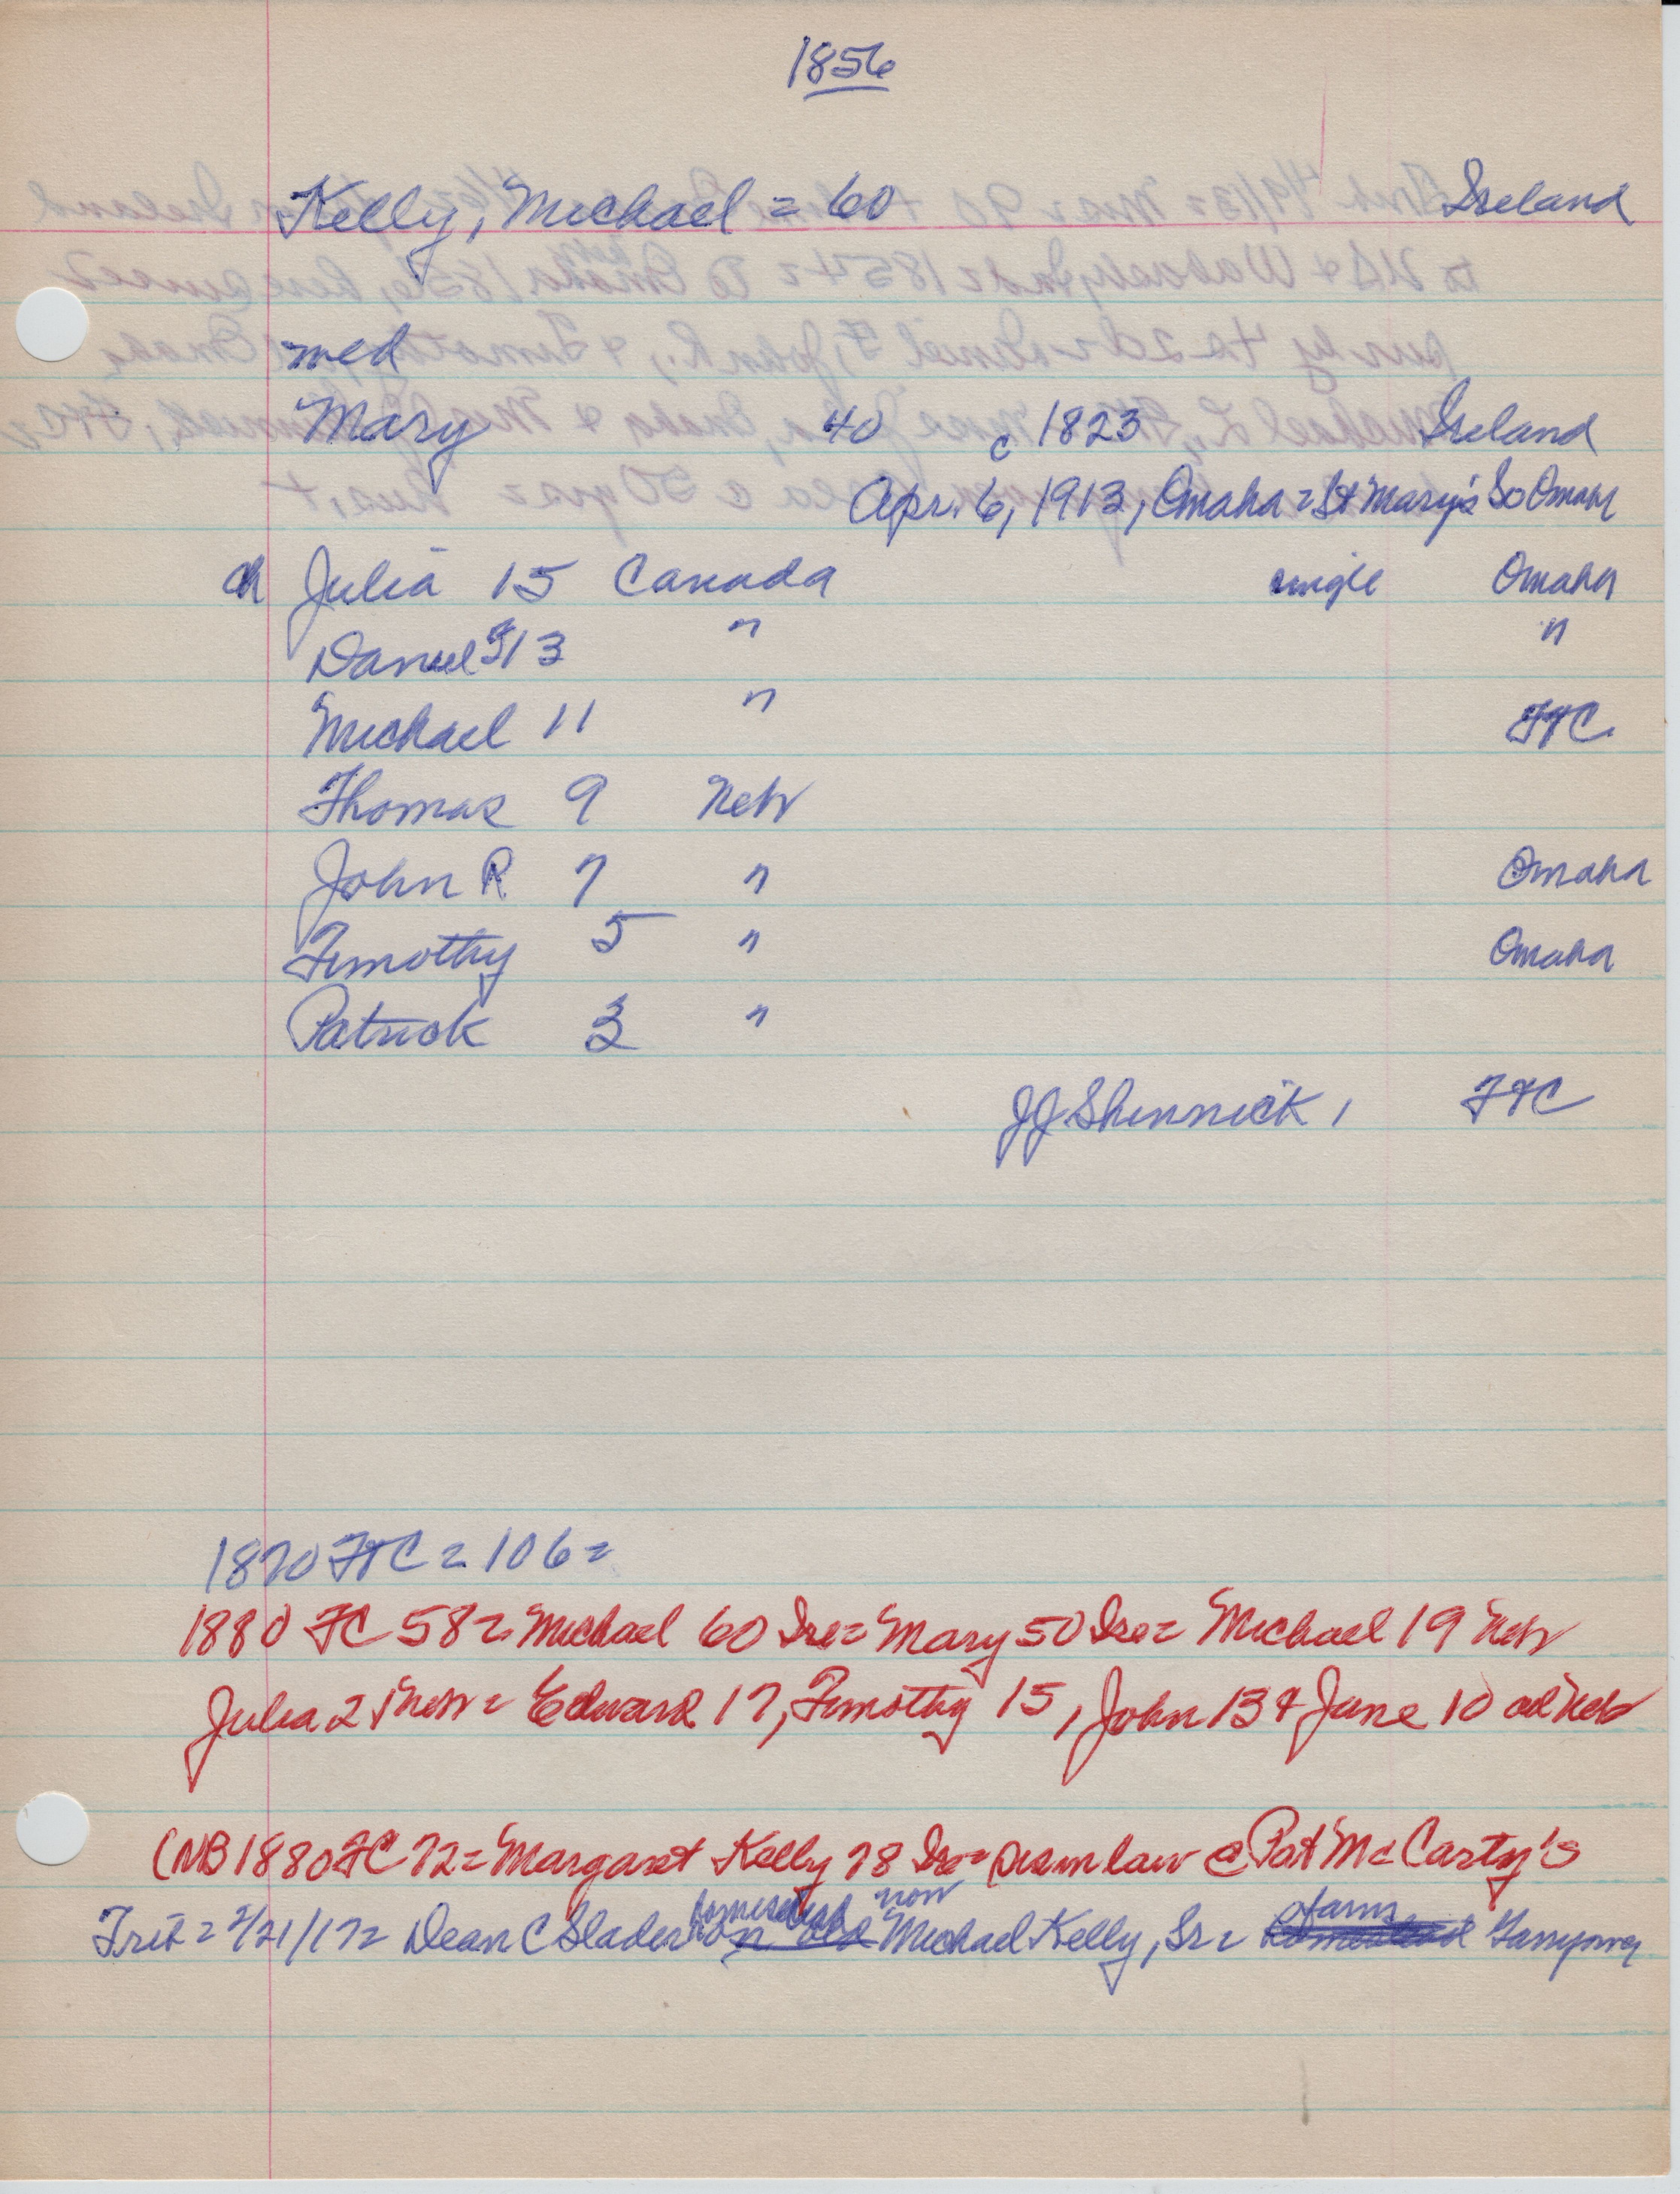 1856
Kelly, Michael = 60 Ireland
med
Mary 40 c 1823 Ireland
Apr. 6, 1913, Omaha = St Mary's So Omaha
ch Julia 15 Canada single Omaha
Daniel F 13 " "
Michael 11 " FtC.
Thomas 9 Neb
John R 7 " Omaha
Timothy 5 " Omaha
Patrick 3 "
JJ Shinnick, FtC
1870 FtC = 106 =
1880 FC 58 = Michael 60 Ire = Mary 50 Ire = Michael 19 Neb
Julia 21 Neb = Edward 17, Timothy 15, John 13 & Jane 10 all Neb
(NB 1880 FC 72 = Margaret Kelly 78 Ire = @ Pat McCarty's
Trib = 2/21/17 = Dean C Slader homestead now Michael Kelly, Sr = farm Garryowen